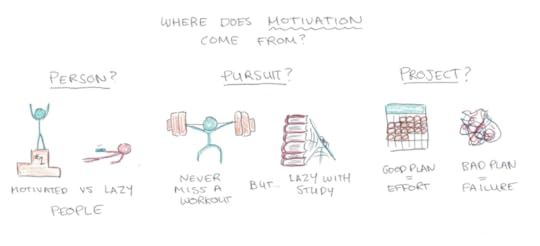 WHERE DOES MOTIVATION
COME FROM?
PERSON?
PURSUIT?
PROJECT?
#1
MOTIVATED VS LAZY
PEOPLE
NEVER
MISS A
WORKOUT
BUT...
LAZY WITH
STUDY
GOOD PLAN
=
EFFORT
BAD PLAN
=
FAILURE